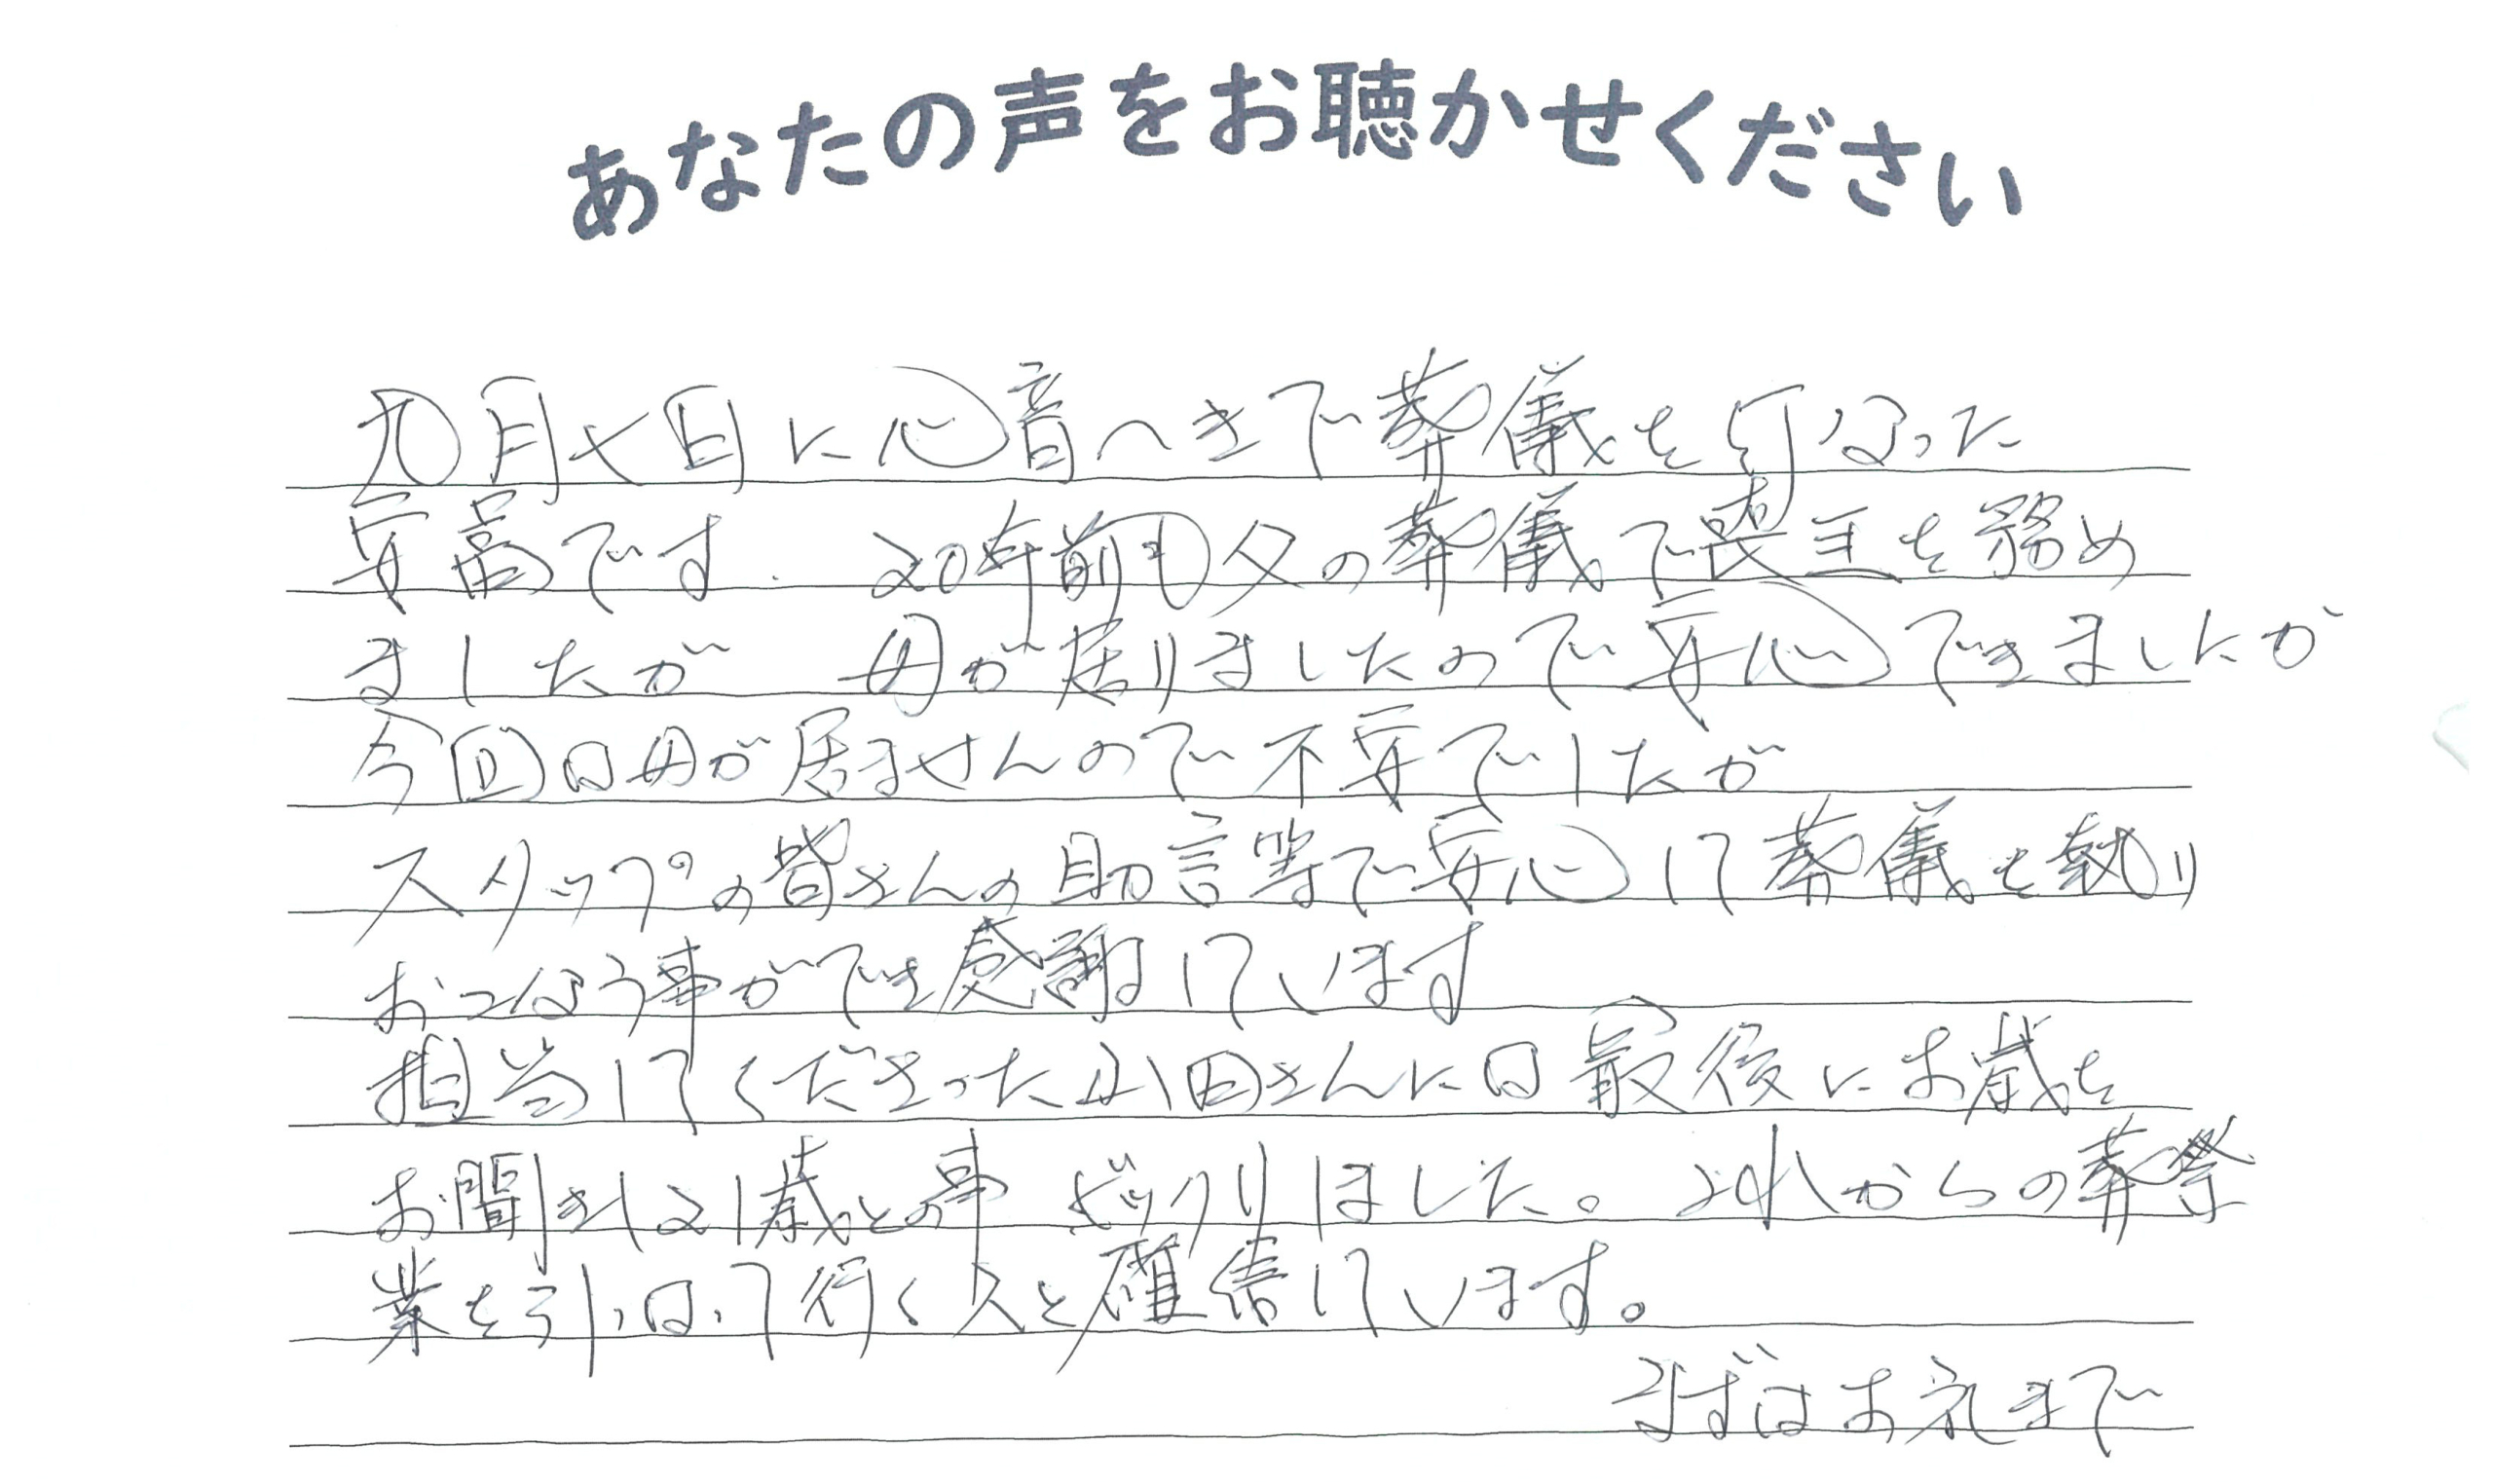 あなたの声をお聴かせください
九月七日に心音へきで葬儀を行なった
安高です. 20年前も父の葬儀で喪主を務め
ましたが 母が居りましたので安心できましたが
今回は母が居ませんので不安でしたが
スタップの皆さんの助言等で安心して葬儀を執り
おこなう事ができ感謝しています
担当してくださった山田さんには最後にお歳を
お聞きし21歳との事 ビックリしました。これからの葬祭
業を引っぱって行く人と確信しています。
まずはお礼まで